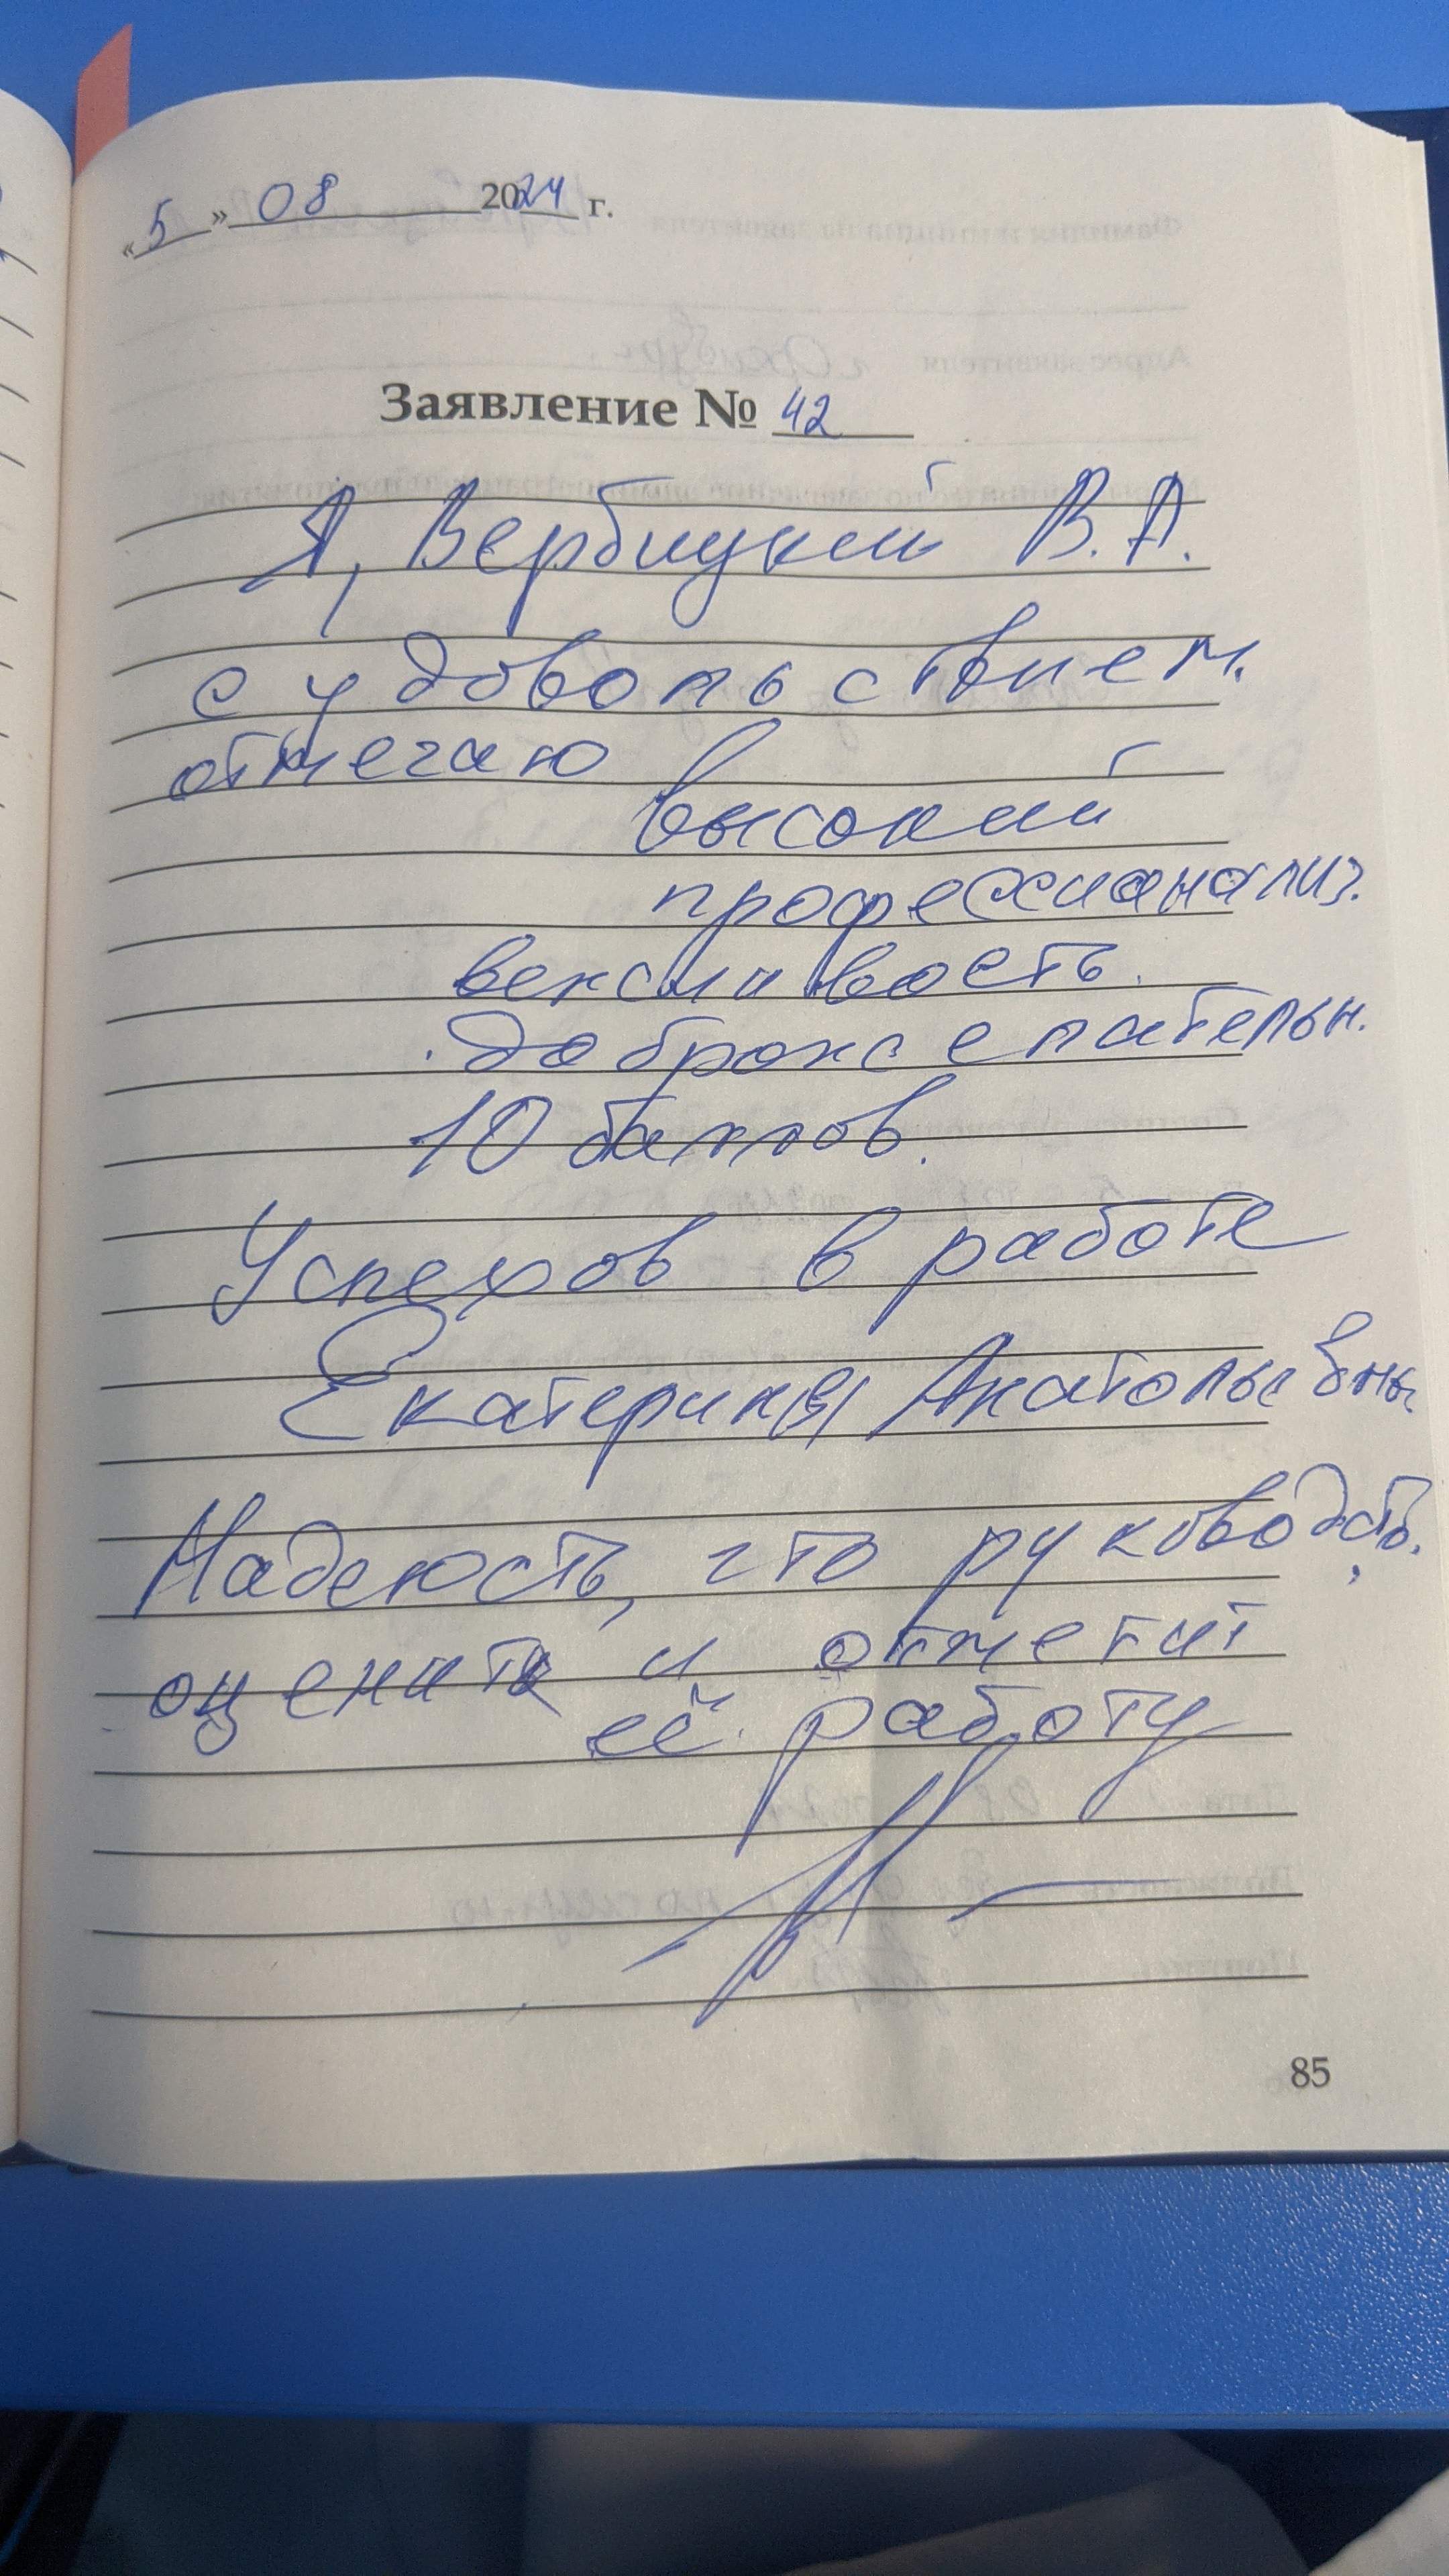 «5» 08 2024 г.
Заявление № 42
Я, Вербицкий В.А.
с удовольствием
отмечаю
высокий
профессианализ.
вежливость.
доброжелательн.
10 баллов.
Успехов в работе
Екатерины Анатольевны
Надеюсть, что руководств.
оценит и отметит
её работу
85